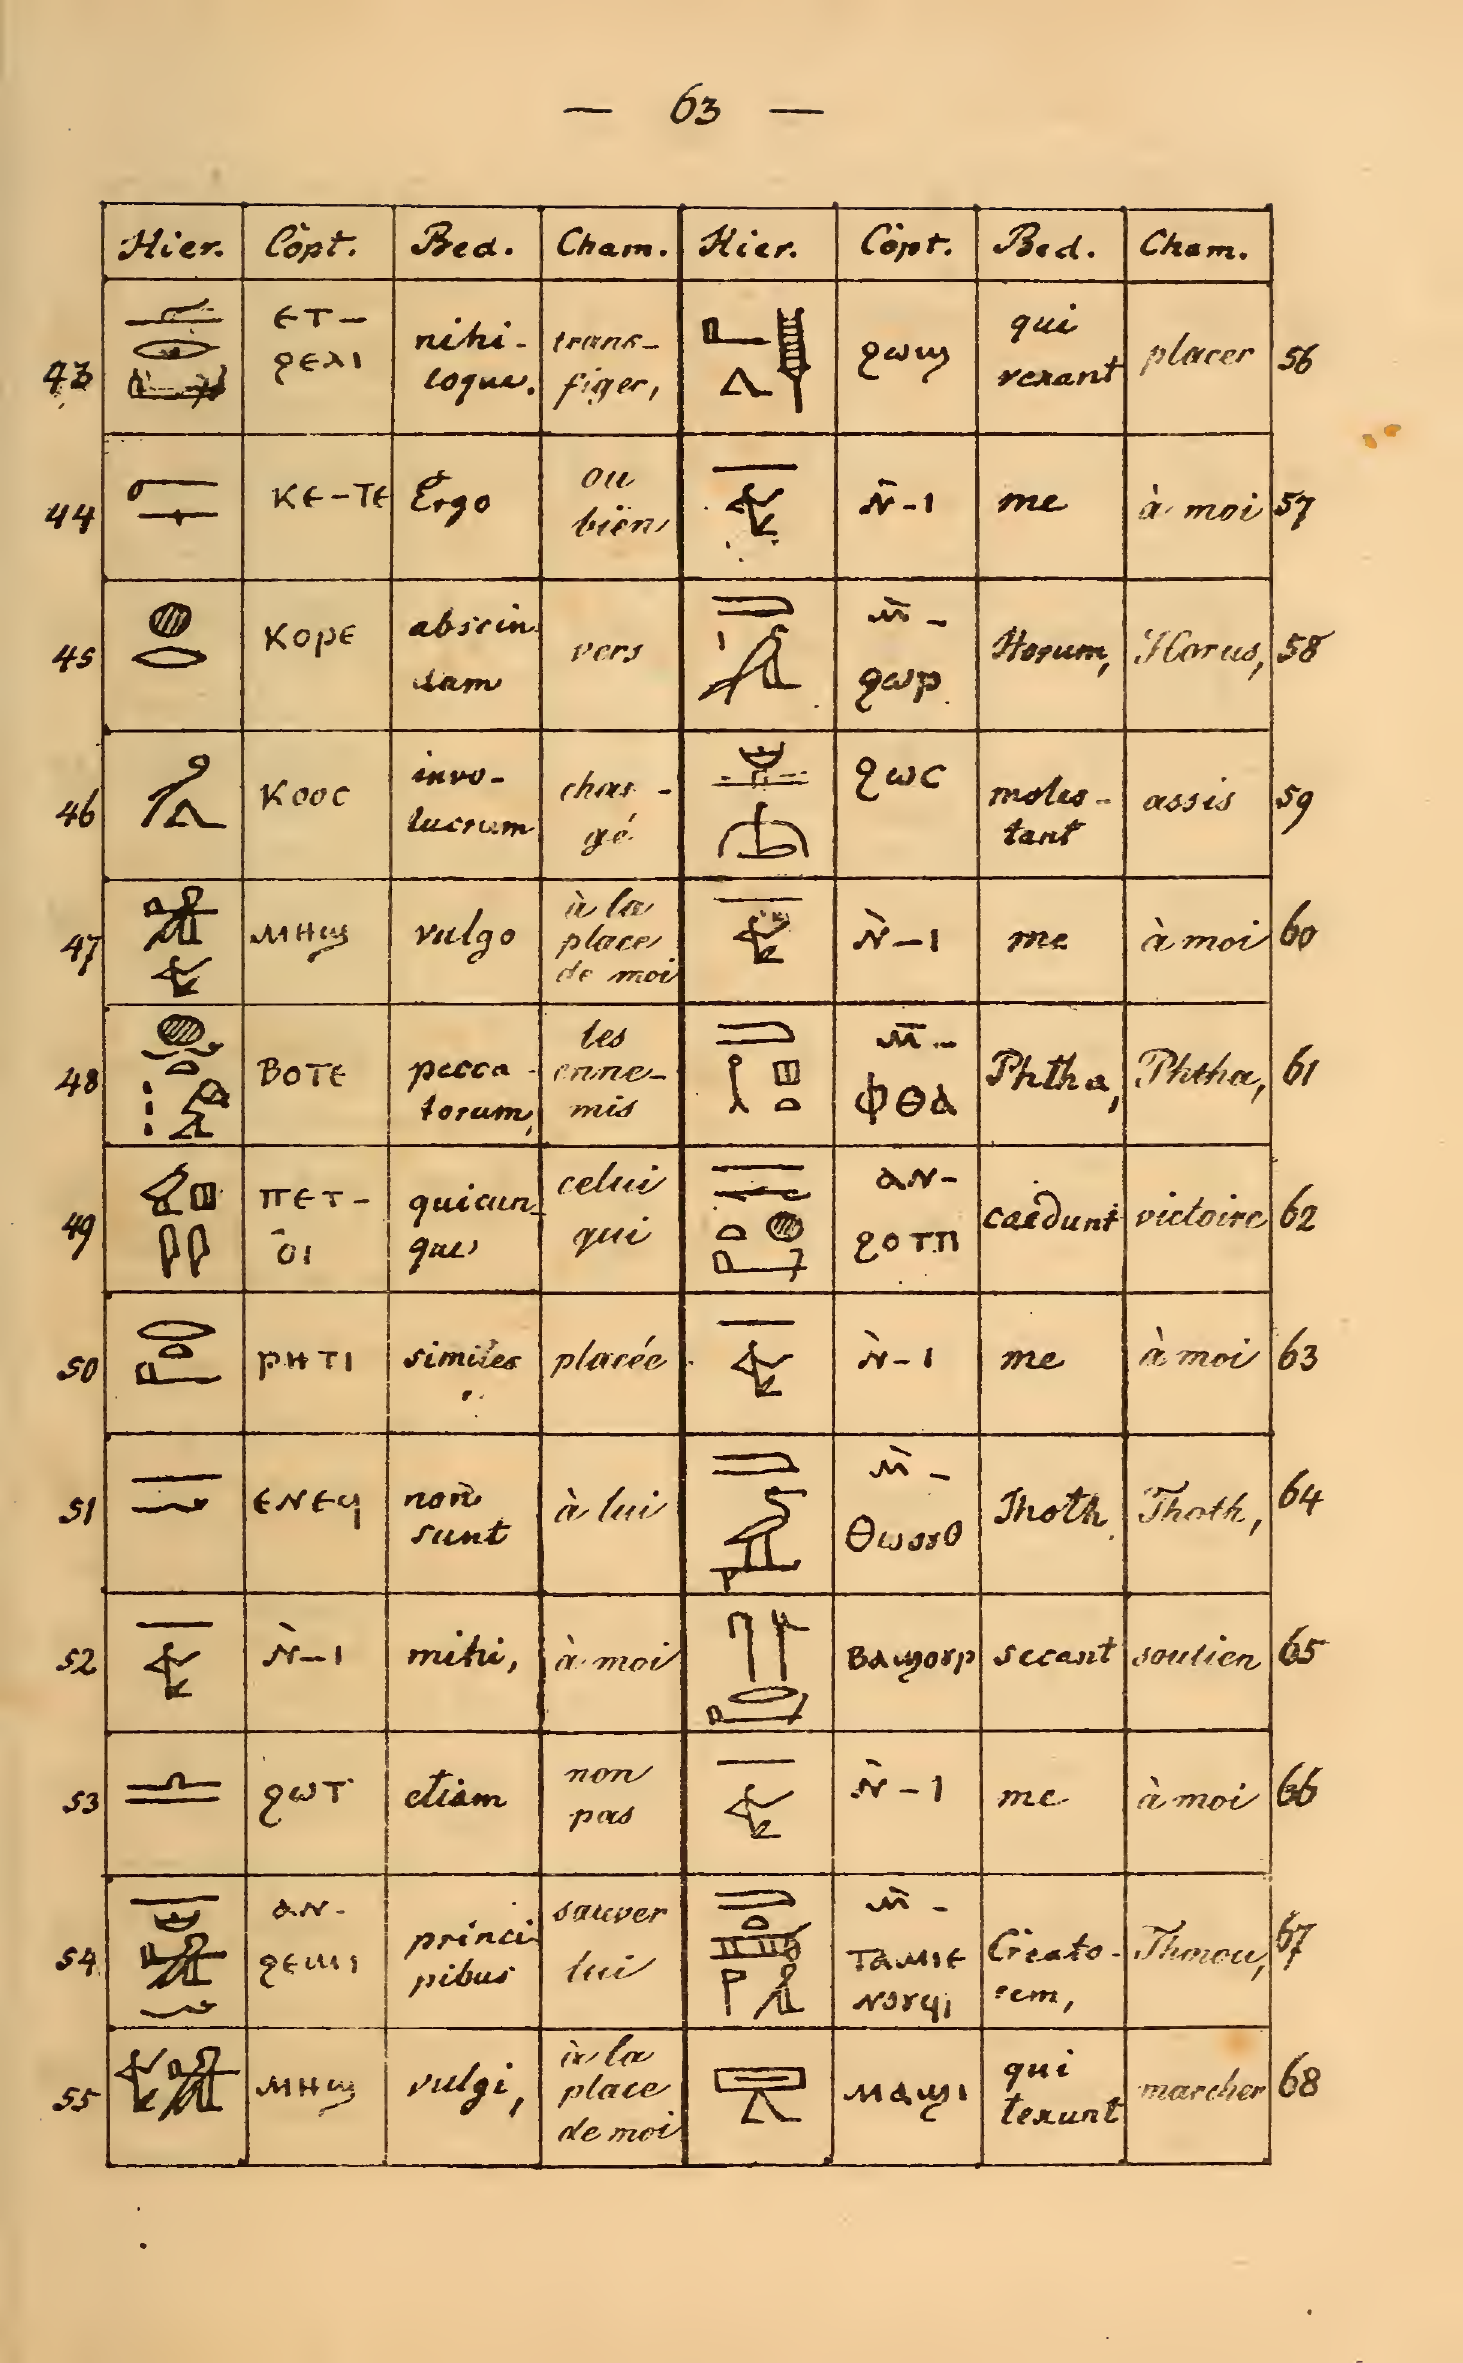 — 63 —
Hier. Copt. Bed. Cham. Hier. Copt. Bed. Cham.
43 ⲉⲧ-ϩⲉⲗⲓ nihi-loque. trans-figer, ϩⲱϣ qui vexant placer 56
44 ⲕⲉ-ⲧⲉ Ergo ou bien ⲛ̀-ⲓ me à moi 57
45 ⲕⲟⲣⲉ abscin dam vers ⲙ̄-ϩⲱⲣ Horum, Horus, 58
46 ⲕⲟⲟⲥ invo-lucrum char-gé ϩⲱⲥ moles-tant assis 59
47 ⲙⲏϣ vulgo à la place de moi ⲛ̀-ⲓ me à moi 60
48 ⲃⲟⲧⲉ pecca-torum, les enne-mis ⲙ̄-ⲫⲑⲁ Phtha, Phtha, 61
49 ⲡⲉⲧ-ⲟⲓ quicun-que celui qui ⲁⲛ-ϩⲟⲧⲡ caedunt victoire 62
50 ⲣⲏⲧⲓ similes placée ⲛ̀-ⲓ me à moi 63
51 ⲉⲛⲉϥ non sunt à lui ⲙ̀-ⲑⲱⲟⲩⲑ Thoth Thoth, 64
52 ⲛ̀-ⲓ mihi, à moi ⲃⲁϣⲟⲩⲣ secant soutien 65
53 ϩⲱⲧ etiam non pas ⲛ̀-ⲓ me à moi 66
54 ⲁⲛ-ϩⲉⲙⲓ princi pibus sauver lui ⲙ̀-ⲧⲁⲙⲓⲉ ⲛⲟⲩϥⲓ Creato-rem, Thmou, 67
55 ⲙⲏϣ vulgi, à la place de moi ⲙⲁϣⲓ qui texunt marcher 68